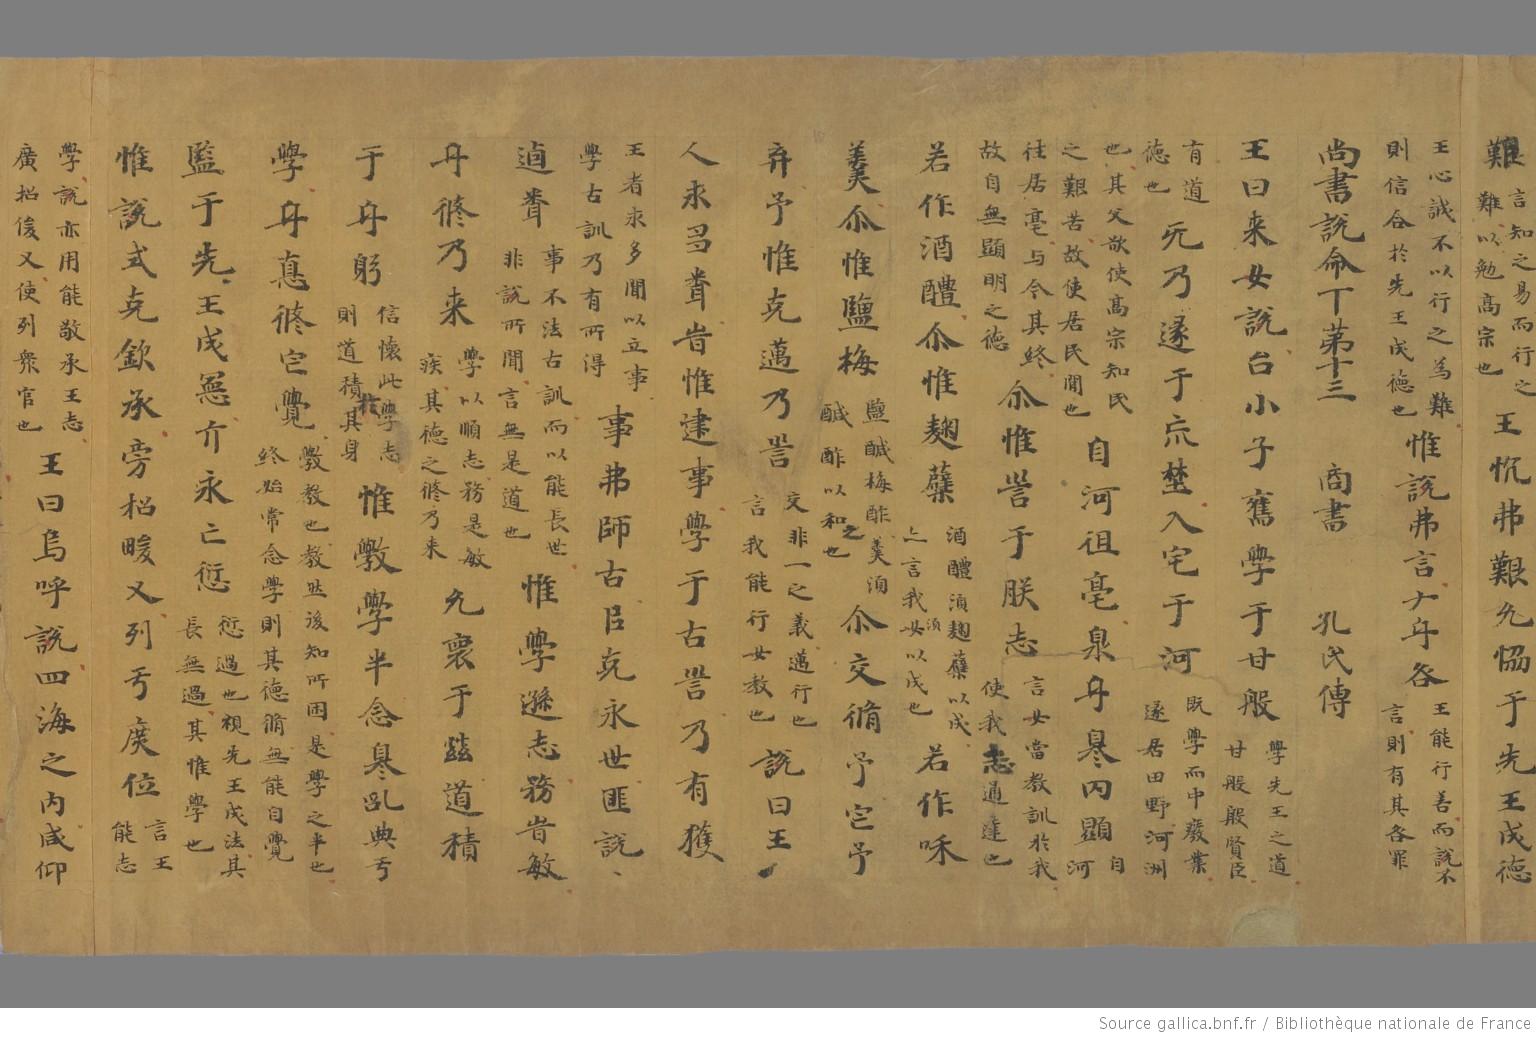 難言知之易而行之難以勉高宗也王忱弗艱允恊于先王成德
王心誠不以行之為難則信合於先王成德也惟說弗言ナ𠂈各王能行善而說不言則有其各罪
尚書說命丅苐十三 商書 孔氏傳
王曰来女說台小子舊學于甘般學先王之道甘般殷賢臣
有道德也旡乃遂于㡿埜入宅于河既學而中廢業遂居田野河洲
也其父欲使高宗知民之艱苦故使居民間也自河徂亳泉𠂈㬎罔顯自河
往居亳与今其終故自無顯明之德尒惟訔于朕志言女當教訓於我使我志通達也
若作酒醴尒惟麹蘖酒醴湏麹蘖以成亡言我湏女以成也若作和
羹尒惟鹽梅鹽醎梅酢羹湏醎酢以和之也尒交脩予宓予
弃予惟克邁乃訔交非一之義邁行也言我能行女教也說曰王
人求多聞旹惟建事學于古訔乃有獲
王者求多聞以立事學古訓乃有所得事弗師古㠯克永世匪說
逌聞事不法古訓而以能長世非說所聞言無是道也惟學遜志務旹敏
𠂈修乃来學以順志務是敏疾其德之修乃来允褱于兹道積
于𠂈躬信懷此學志則道積於其身惟斆學半念㬎乱典于
學𠂈惪修宓覺斆教也教然後知所困是學之半也終始常念學則其德脩無能自覺
監于先王成憲亣永亡愆愆過也視先王成法其長無過其惟學也
惟說式克欽承旁招畯乂列于庶位言王能志
學說亦用能敬承王志廣招俊乂使列衆官也王曰烏呼說四海之内咸仰
Source gallica.bnf.fr / Bibliothèque nationale de France